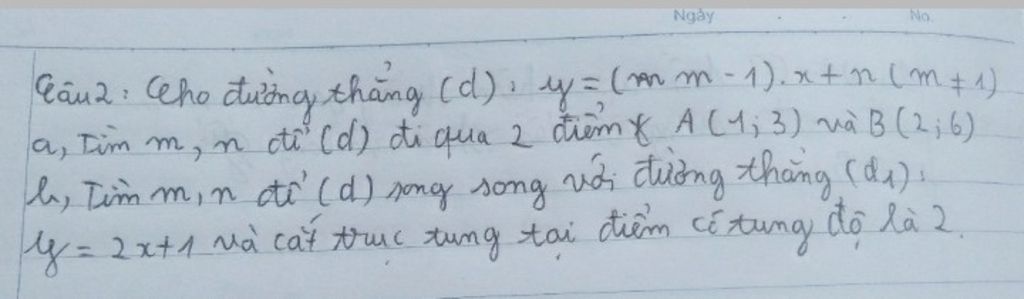 Ngày No.
Câu 2: Cho đường thẳng (d): y = (m m - 1).x + n (m ≠ 1)
a, Tìm m, n để (d) đi qua 2 điểm A (1; 3) và B (2; 6)
b, Tìm m, n để (d) song song với đường thẳng (d1):
y = 2x + 1 và cắt trục tung tại điểm có tung độ là 2.